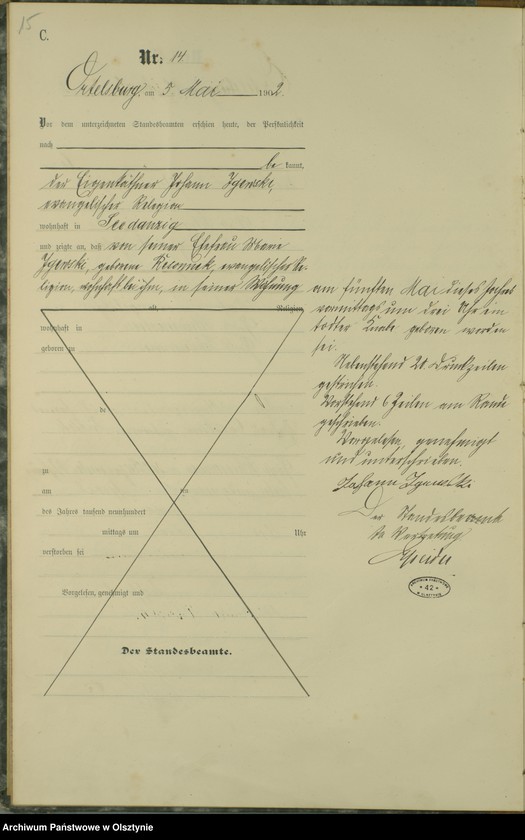 15
C.
Nr. 14.
Ortelsburg, am 5. Mai 1902.
Vor dem unterzeichneten Standesbeamten erschien heute, der Persönlichkeit
nach
be kannt,
der Eigenkäthner Johann
evangelischer Religion
wohnhaft in Seedanzig
und zeigte an, daß von seiner Ehefrau Marie
geborene evangelischer Re-
ligion, wohnhaft bei ihm, in seiner Wohnung
alt, Religion,
wohnhaft in
geboren zu
de
zu
am ten
des Jahres tausend neunhundert
mittags um Uhr
verstorben sei
Vorgelesen, genehmigt und
Der Standesbeamte.
am fünften Mai dieses Jahres
vormittags um drei Uhr ein
todter Knabe geboren worden
sei.
Nebenstehend 20 Druckzeilen
gestrichen.
Vorstehend 6 Zeilen am Rande
geschrieben.
Vorgelesen, genehmigt
und unterschrieben.
Johann
Der Standesbeamte
In Vertretung
ARCHIWUM PAŃSTWOWE
* 42 *
w OLSZTYNIE
Archiwum Państwowe w Olsztynie